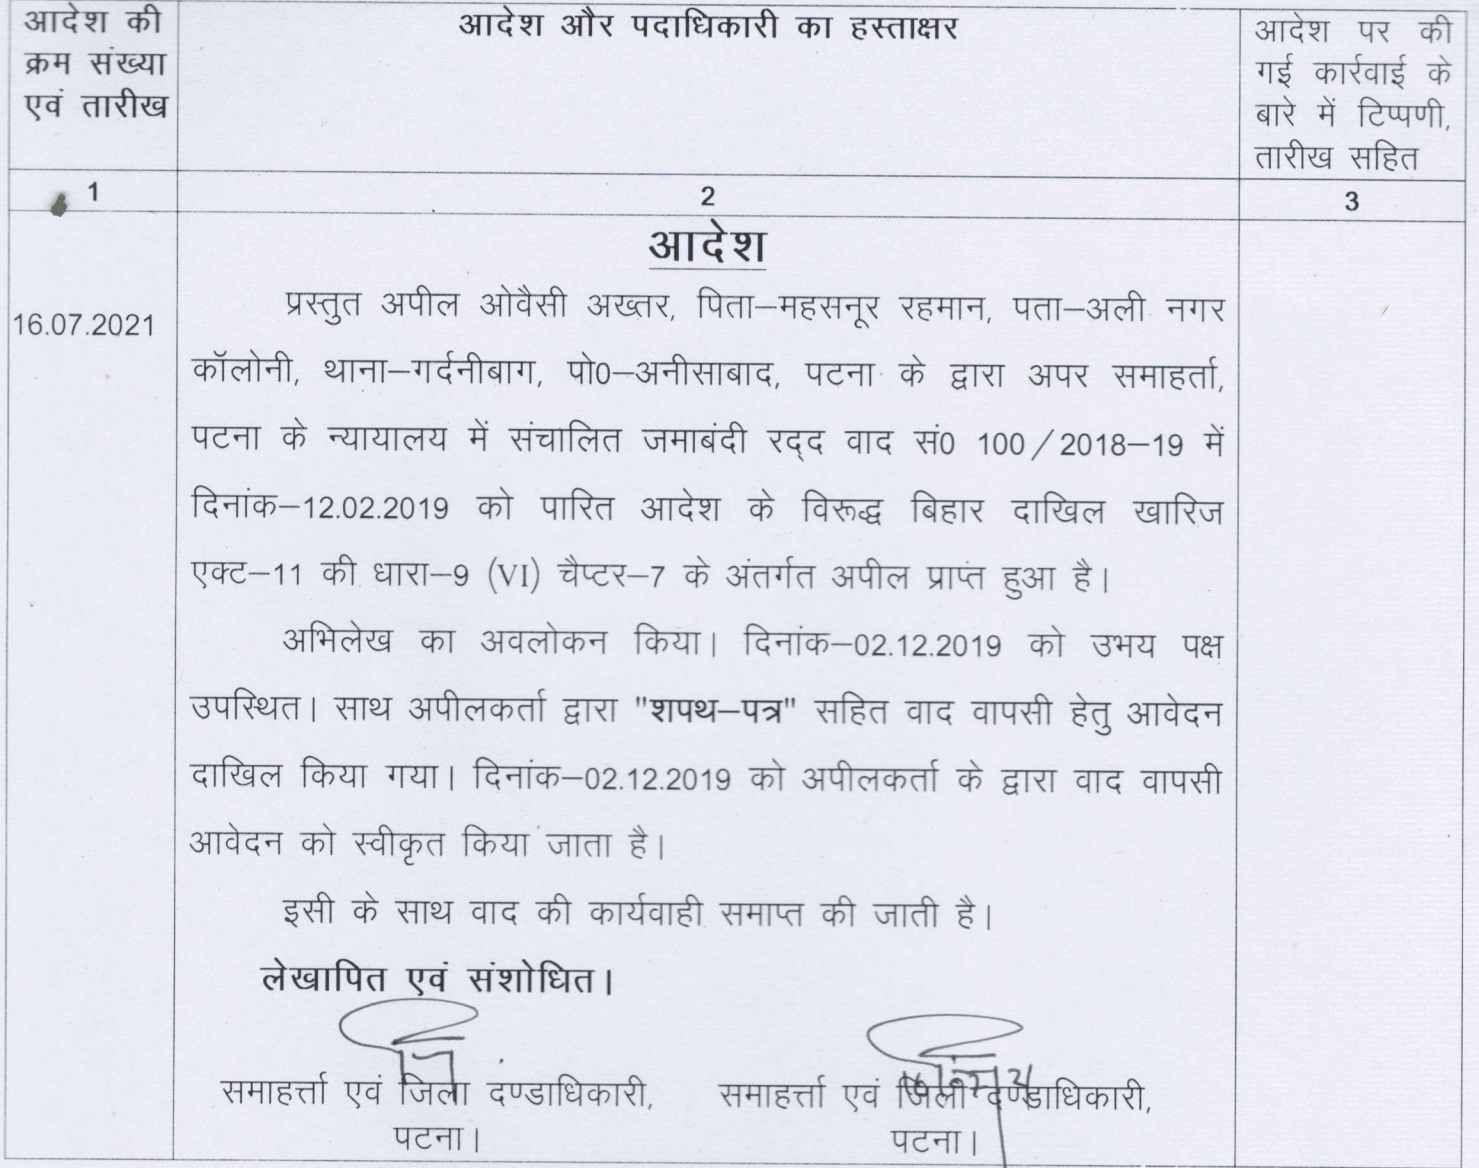 आदेश की
क्रम संख्या
एवं तारीख
आदेश और पदाधिकारी का हस्ताक्षर
आदेश पर की
गई कार्रवाई के
बारे में टिप्पणी,
तारीख सहित
1
2
3
आदेश
16.07.2021
प्रस्तुत अपील ओवैसी अख्तर, पिता–महसनूर रहमान, पता–अली नगर
कॉलोनी, थाना–गर्दनीबाग, पो0–अनीसाबाद, पटना के द्वारा अपर समाहर्ता,
पटना के न्यायालय में संचालित जमाबंदी रद्द वाद सं0 100/2018–19 में
दिनांक–12.02.2019 को पारित आदेश के विरूद्ध बिहार दाखिल खारिज
एक्ट–11 की धारा–9 (VI) चैप्टर–7 के अंतर्गत अपील प्राप्त हुआ है।
अभिलेख का अवलोकन किया। दिनांक–02.12.2019 को उभय पक्ष
उपस्थित। साथ अपीलकर्ता द्वारा "शपथ–पत्र" सहित वाद वापसी हेतु आवेदन
दाखिल किया गया। दिनांक–02.12.2019 को अपीलकर्ता के द्वारा वाद वापसी
आवेदन को स्वीकृत किया जाता है।
इसी के साथ वाद की कार्यवाही समाप्त की जाती है।
लेखापित एवं संशोधित।
समाहर्त्ता एवं जिला दण्डाधिकारी,
पटना।
समाहर्त्ता एवं जिला दण्डाधिकारी,
पटना।